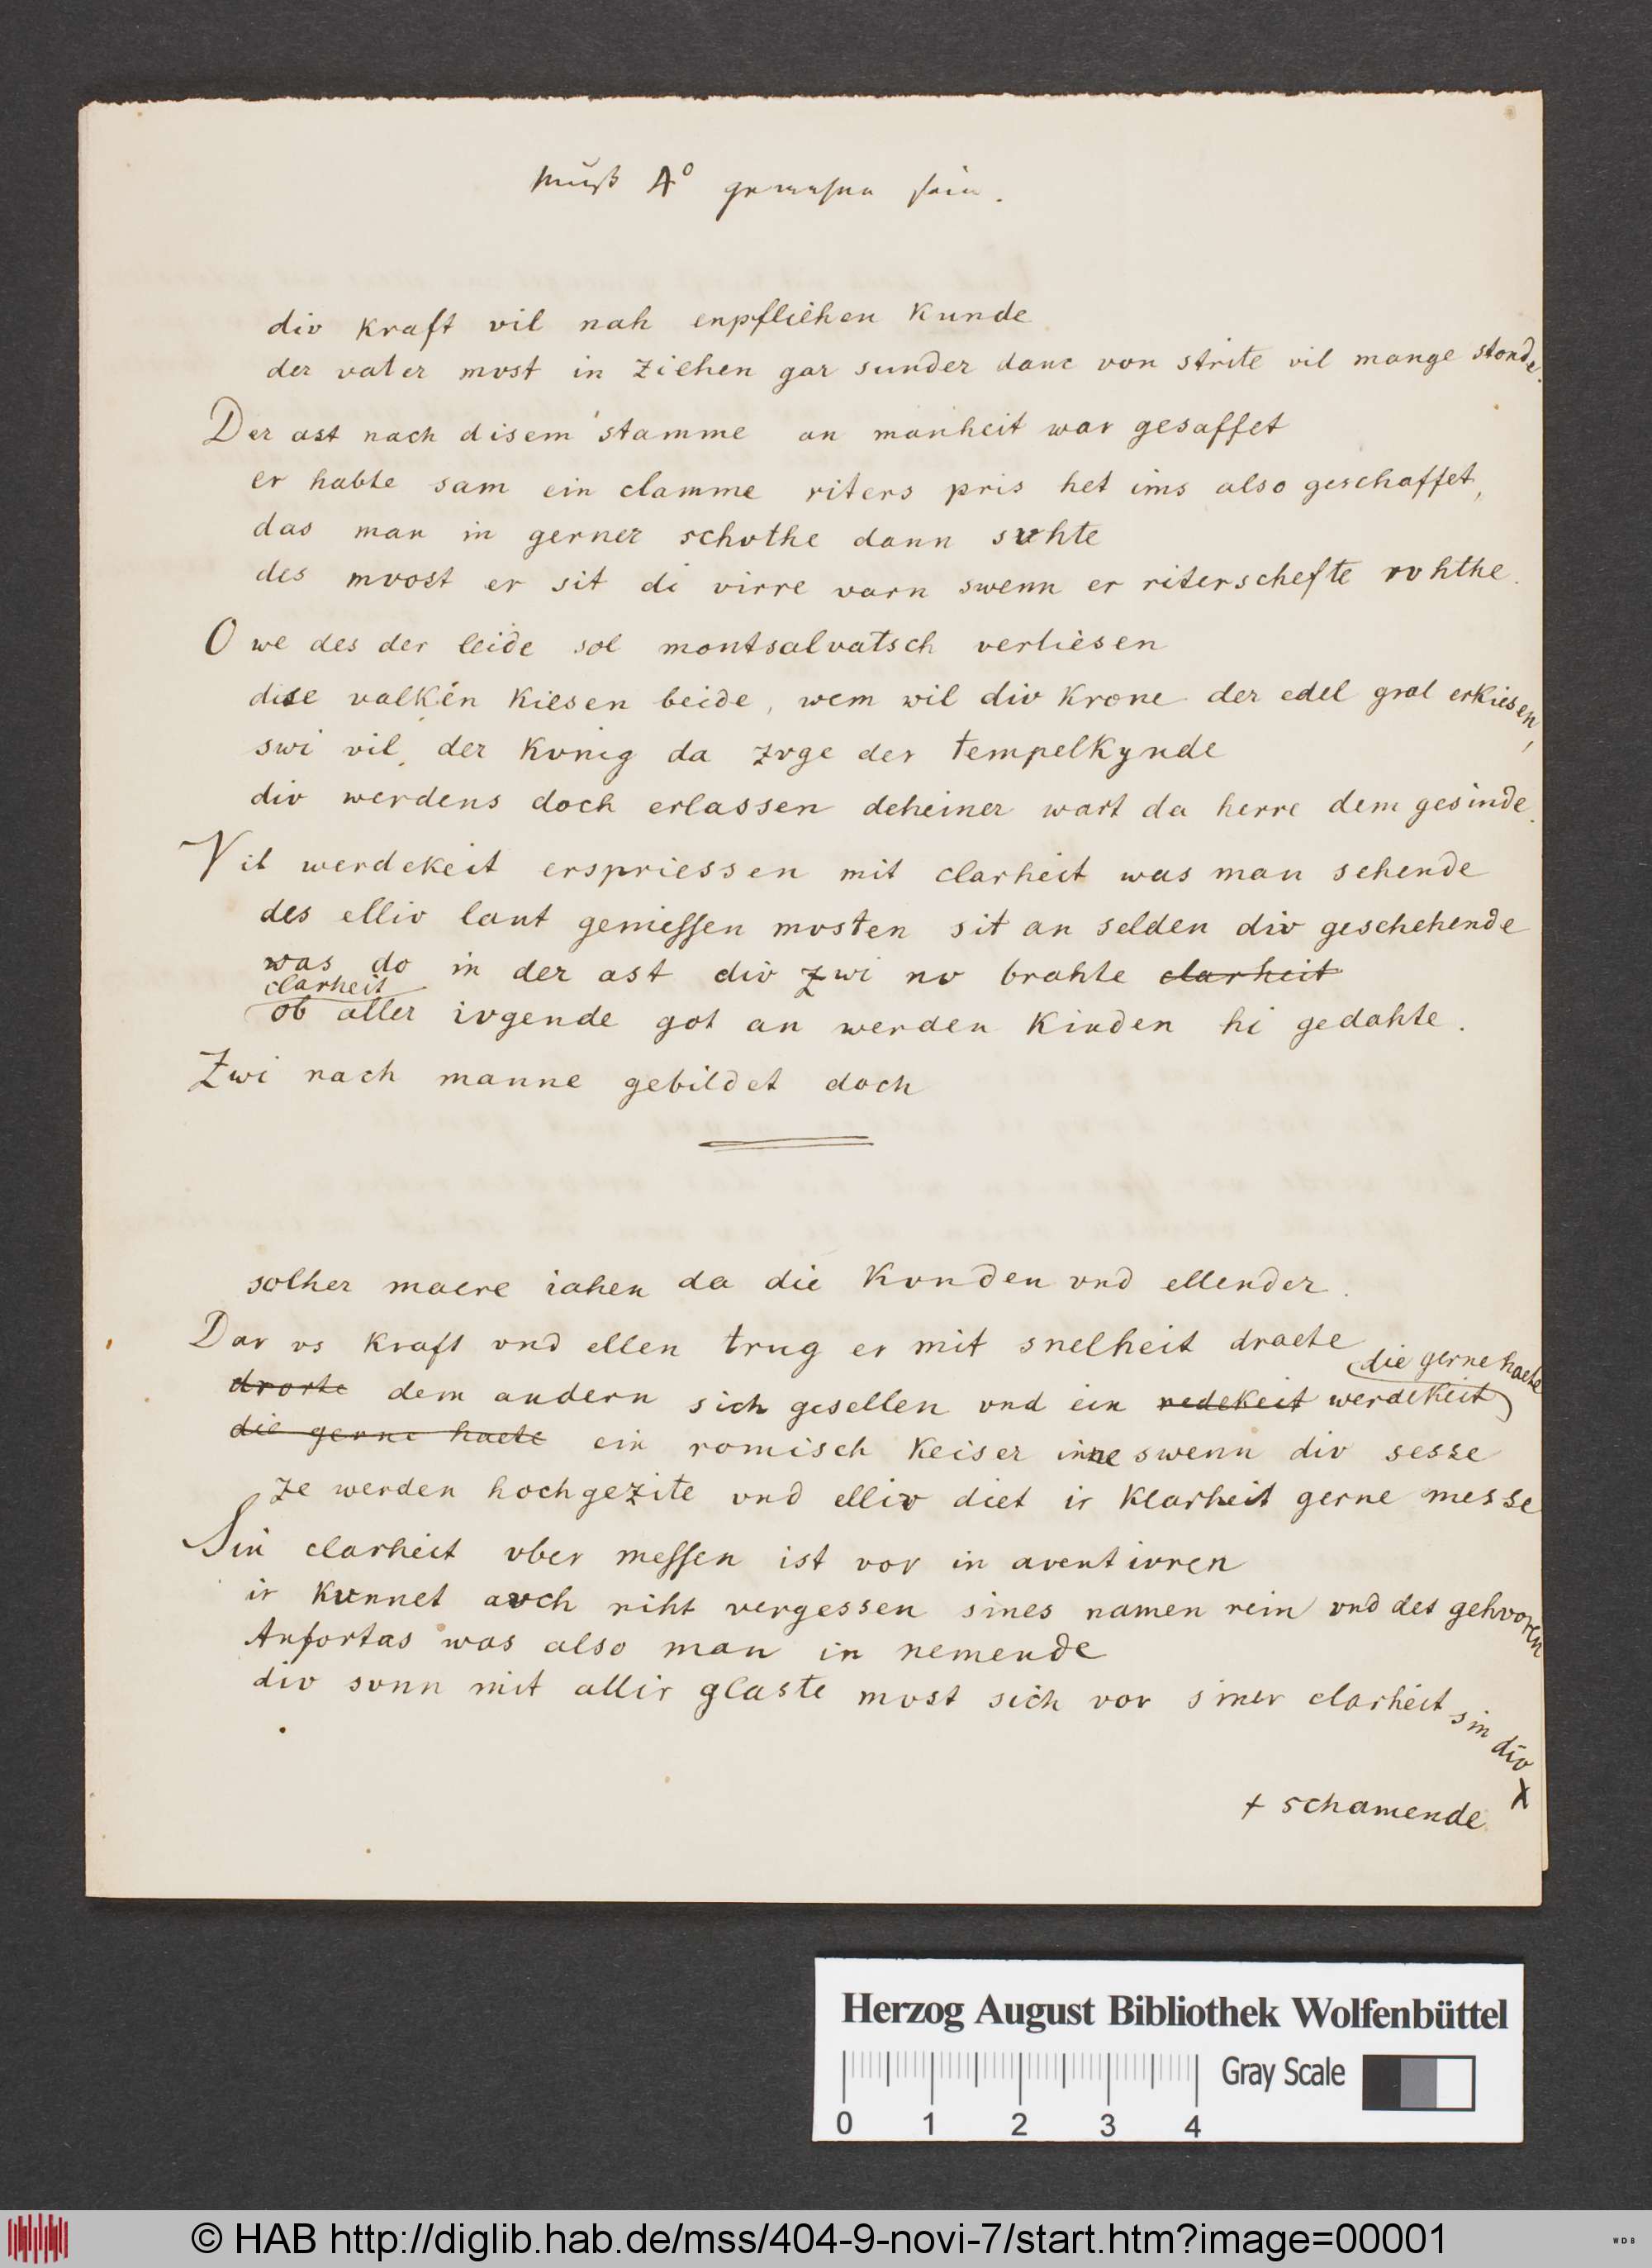 muß A° gewesen sein.
div kraft vil nah enpfliehen kunde
der vater mvst in ziehen gar sunder danc von strite vil mange stonde.
Der ast nach disem stamme an manheit war gesaffet
er habte sam ein clamme riters pris het ims also geschaffet,
das man in gerner schvthe dann svhte
des mvost er sit di virre varn swenn er riterschefte rvhthe.
O we des der leide sol montsalvatsch verliesen
dise valken kiesen beide, wem wil div krone der edel gral erkiesen,
swi vil der kvnig da zvge der tempelkynde
div werdens doch erlassen deheiner wart da herre dem gesinde.
Vil werdekeit erspriessen mit clarheit was man sehende
des elliv lant geniessen mvsten sit an selden div geschehende
was do in der ast div zwi nv brahte clarheit
clarheit
ob aller ivgende got an werden kinden hi gedahte.
Zwi nach manne gebildet doch
solher maere iahen da die kvnden vnd ellender.
Dar vs kraft vnd ellen trug er mit snelheit draete
die gerne haete
drorte dem andern sich gesellen vnd ein redekeit werdekeit
die gerne haete ein romisch keiser inne swenn div sesse
ze werden hochgezite vnd elliv diet ir klarheit gerne messe
Sin clarheit vber messen ist vor in aventivren
ir kvnnet avch niht vergessen sines namen rein vnd des gehvoren
Anfortas was also man in nemende
div svnn mit allir glaste mvst sich vor siner clarheit sin div x
+ schamende
Herzog August Bibliothek Wolfenbüttel
Gray Scale
0 1 2 3 4
© HAB http://diglib.hab.de/mss/404-9-novi-7/start.htm?image=00001
WDB